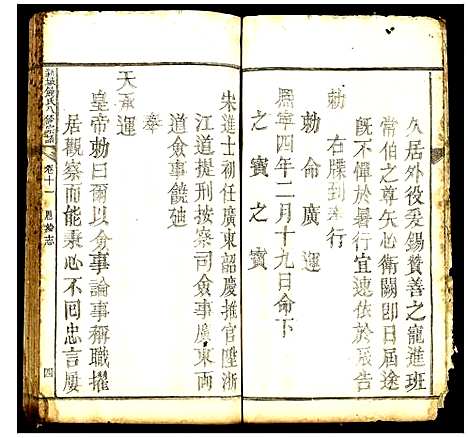 久居外役爰錫贊善之寵進班
常伯之尊矢心衛闕卽日屆途
旣不憚於暑行宜速依於辰告
右牒到奉行
勅
勅命廣運
熙寧四年二月十九日命下
之寶之寶
朱進士初任廣東韶慶推官陞浙
江道提刑按察司僉事廣東兩
道僉事饒廸
奉
天承運
皇帝勅曰爾以僉事論事稱職擢
居觀察而能秉心不回忠言屢
卷十一
恩綸志
四